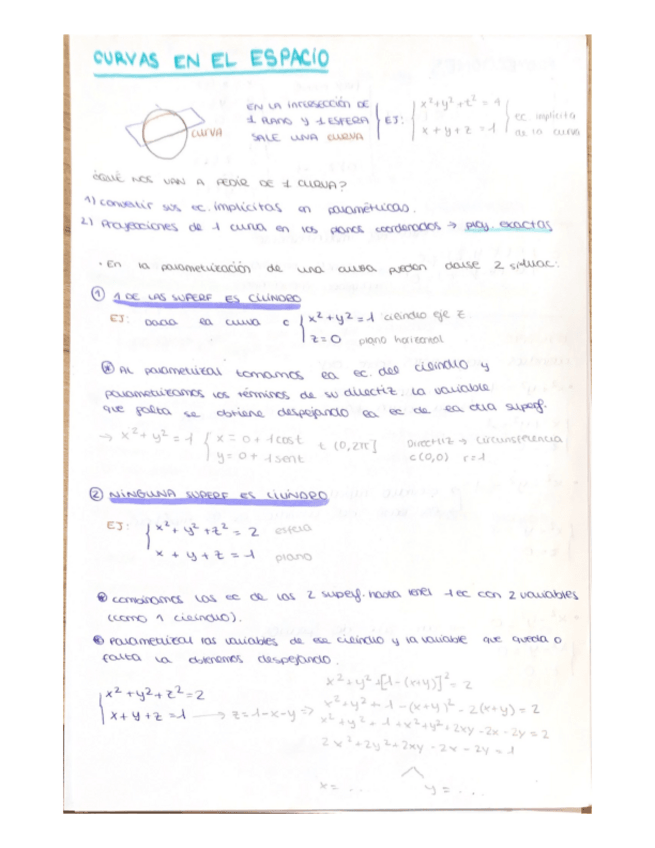 CURVAS EN EL ESPACIO
EN LA INTERSECCIÓN DE
1 PLANO Y 1 ESFERA
SALE UNA CURVA
EJ: { x²+y²+z² = 4
x + y + z = 1
ec implícita
de la curva
curva
¿QUÉ NOS VAN A PEDIR DE 1 CURVA?
1) convertir sus ec. implícitas en paramétricas.
2) Proyecciones de 1 curva en los planos coordenados → proy. exactas
· En la parametrización de una curva pueden darse 2 situac:
① 1 DE LAS SUPERF ES CILINDRO
EJ: Dada la curva C { x² + y² = 1 cilindro eje z
z = 0 plano horizontal
Al parametrizar tomamos la ec. del cilindro y
parametrizamos los términos de su directriz, la variable
que falta se obtiene despejando la ec de la otra superf.
→ x² + y² = 1 { x = 0 + 1cost t (0,2π] Directriz → circunsferencia
y = 0 + 1sent c(0,0) r=1
② NINGUNA SUPERF ES CILINDRO
EJ: { x² + y² + z² = 2 esfera
x + y + z = 1 plano
combinamos las ec de las 2 superf. hasta tener 1 ec con 2 variables
(como 1 cilindro).
Parametrizar las variables de ese cilindro y la variable que queda o
falta la obtenemos despejando.
{ x² + y² + z² = 2
x + y + z = 1 → z = 1-x-y ⇒
x² + y² + [1-(x+y)]² = 2
x² + y² + 1 - (x+y)² - 2(x+y) = 2
x² + y² + 1 + x² + y² + 2xy - 2x - 2y = 2
2x² + 2y² + 2xy - 2x - 2y = 1
x = ... y = ...